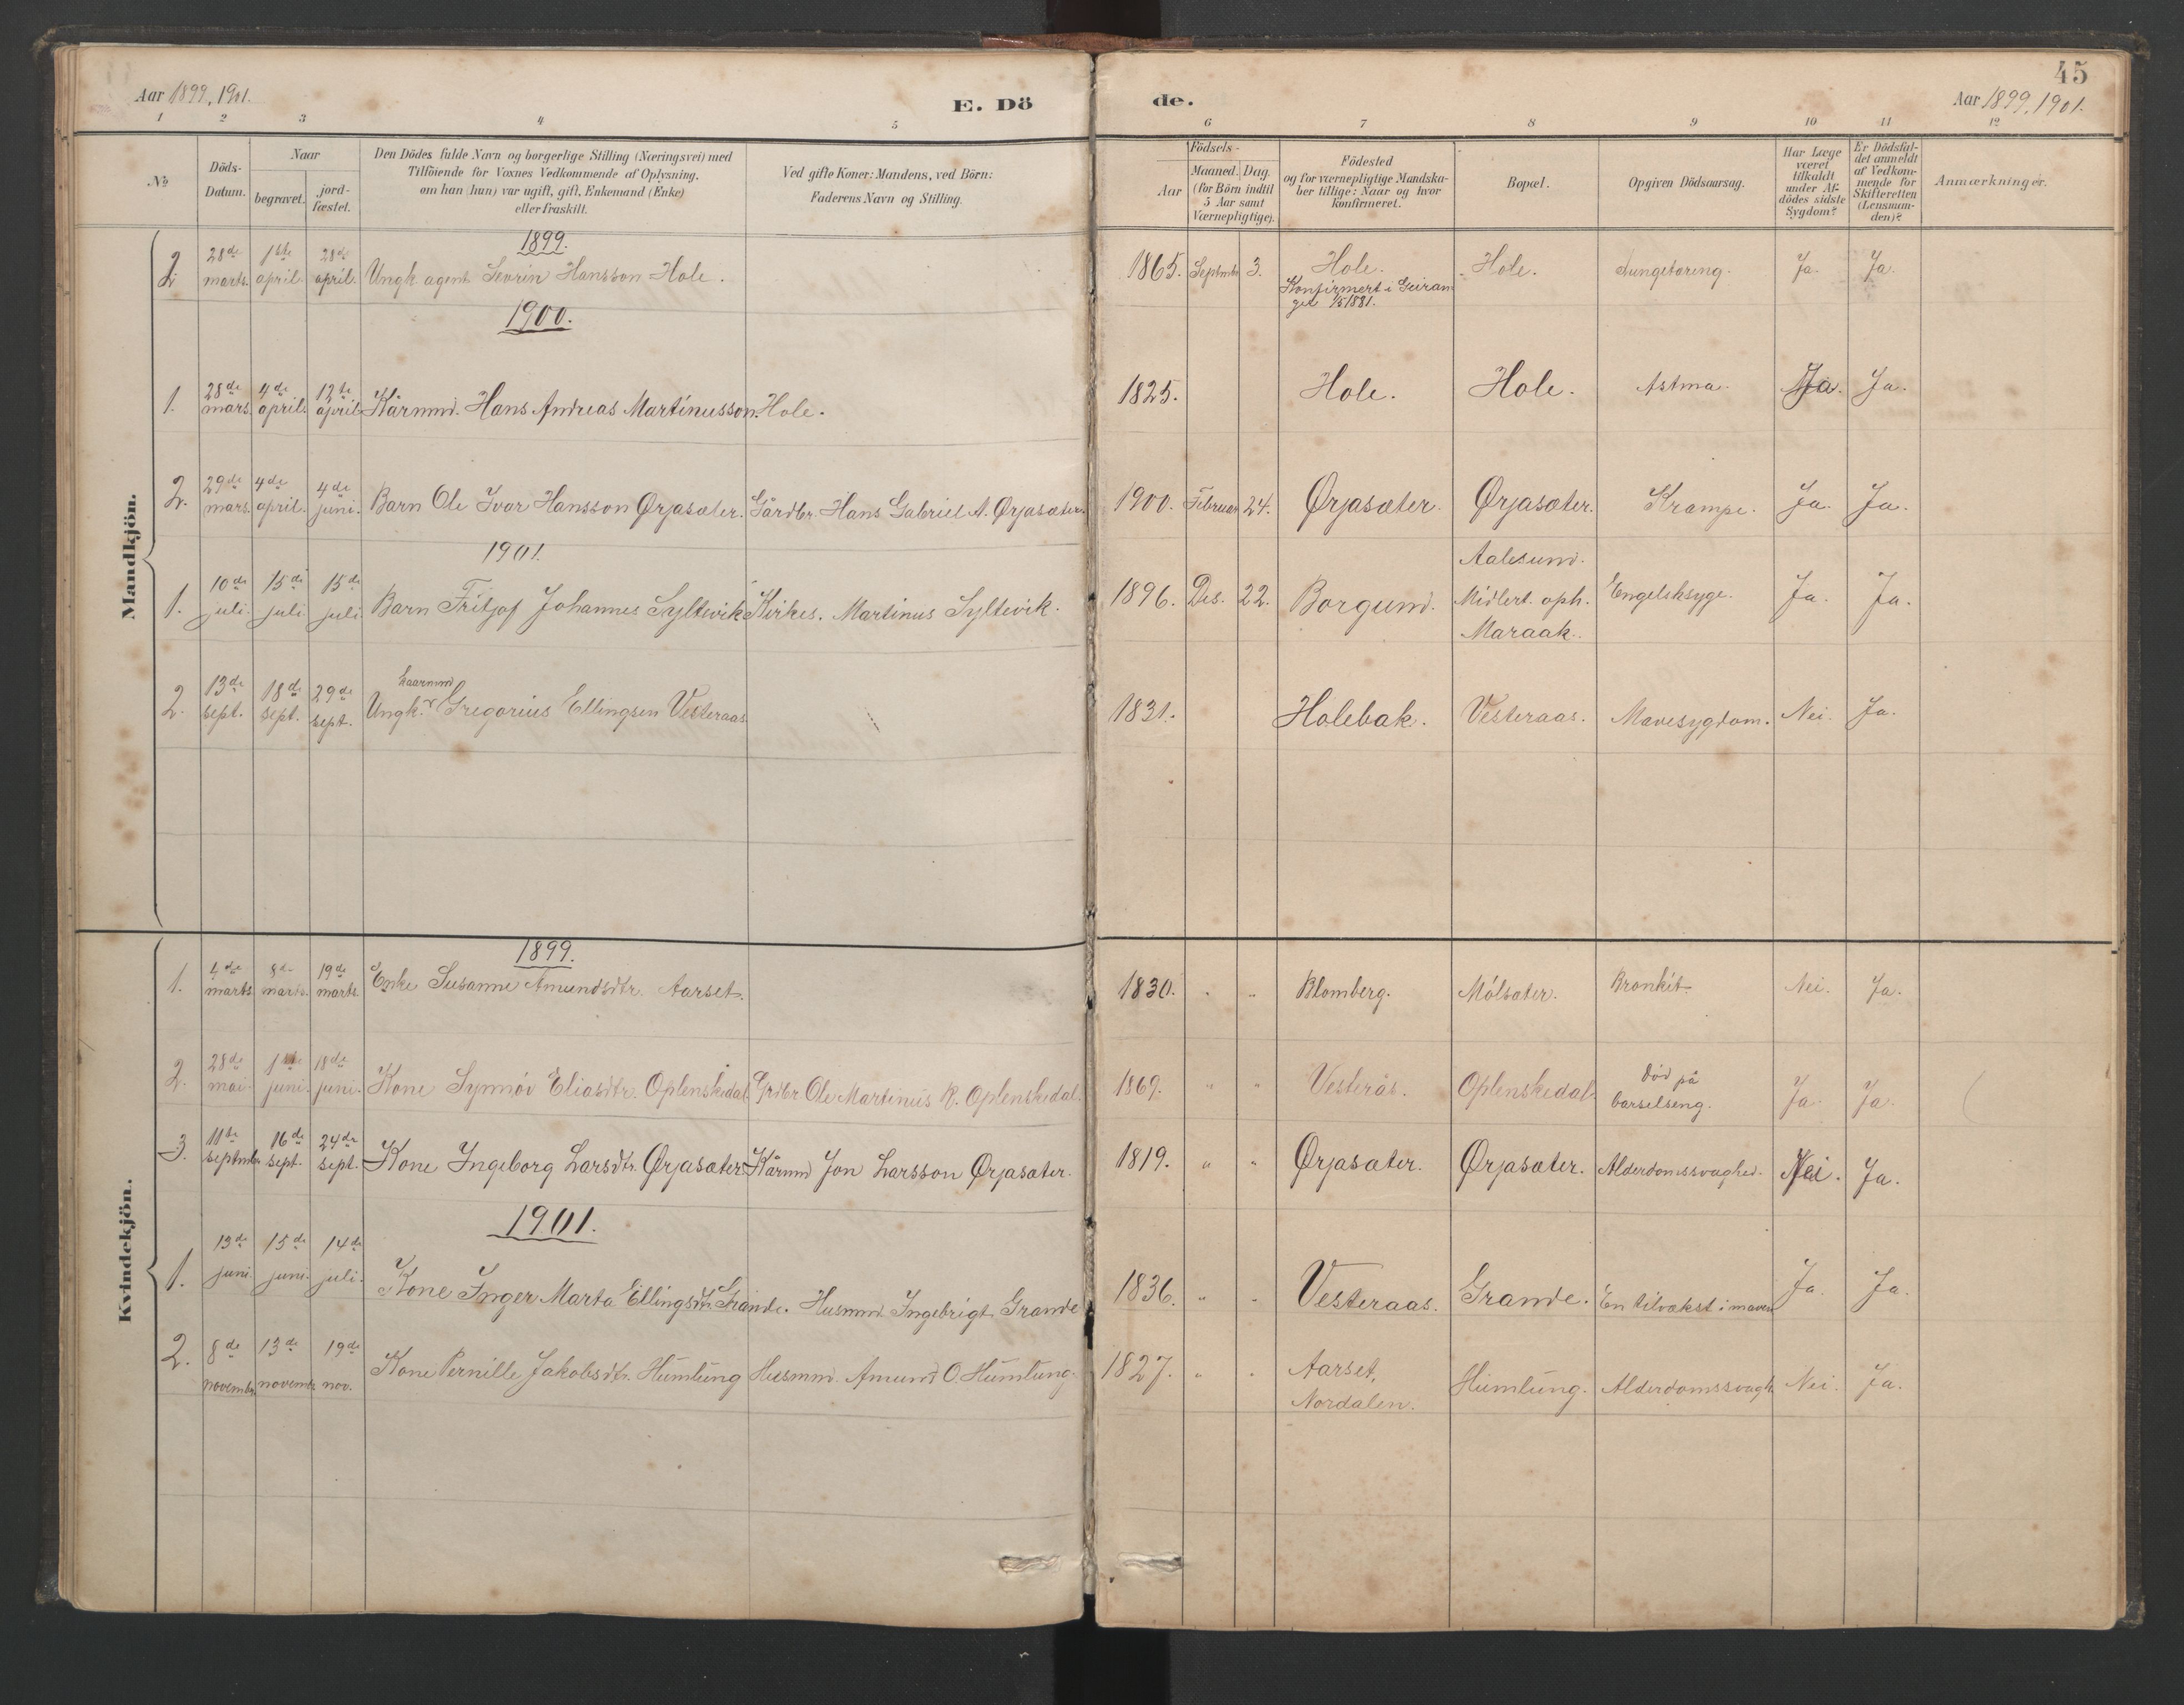 45
Aar 1899, 1901. E. Dö de. Aar 1899, 1901.
1 2 3 4 5 6 7 8 9 10 11 12
№
Döds-
Datum.
Naar
begravet.
jord-
fæstet.
Den Dödes fulde Navn og borgerlige Stilling (Næringsvei) med
Tilföiende for Voxnes Vedkommende af Oplysning.
om han (hun) var ugift, gift, Enkemand (Enke)
eller fraskilt.
Ved gifte Koner: Mandens, ved Börn:
Faderens Navn og Stilling.
Födsels-
Aar
Maaned. Dag.
(for Börn indtil
5 Aar samt
Værnepligtige).
Födested
og for værnepligtige Mandska-
ber tillige: Naar og hvor
konfirmeret.
Bopæl.
Opgiven Dödsaarsag.
Har Læge
været
tilkaldt
under Af-
dödes sidste
Sygdom?
Er Dödsfal-
det anmeldt
af Vedkom-
mende for
Skifteretten
(Lensman-
den)?
Anmærkninger.
Mandkjön.
1899.
2. 28de marts. 1ste april. 28de april. Ungk. agent Sevrin Hansson Hole. 1865. Septmbr 3. Hole. Hole. Lungetæring. Ja. Ja.
Konfirmert i Geiran
ger 1/5 1881.
1900.
1. 28de mars. 4de april. 12te april. Kårmnd. Hans Andreas Martinusson Hole. 1825. Hole. Hole. Astma. Ja. Ja.
2. 29de mars. 4de april. 4de juni. Barn Ole Ivar Hansson Ørjasæter. Gårdbr. Hans Gabriel A. Ørjasæter. 1900. Februar 24. Ørjasæter. Ørjasæter. Krampe. Ja. Ja.
1901.
1. 10de juli. 15de juli. 15de juli. Barn Fritjof Johannes Syltevik Kirkes. Martinus Syltevik. 1896. Des. 22. Borgund. Aalesund.
Midlert. oph.
Maraak. Engelsksyge. Ja. Ja.
kaarmnd
2. 13de sept. 18de sept. 29de sept. Ungk. Gregorius Ellingsen Vesteraas 1831. Holebak. Vesteraas. Mavesygdom. Nei. Ja.
Kvindekjön.
1899.
1. 4de marts. 8de marts. 19de marts. Enke Susanne Amundsdtr. Aarset. 1830. " " Blomberg. Mólsæter. Bronkit. Nei. Ja.
2. 28de mai. 1ste juni. 18de juni. Kone Synnóv Eliasdtr. Oplenskedal. Grdbr Ole Martinus R. Oplenskedal. 1869. " " Vesterås. Oplenskedal. Død på
barselseng. Ja. Ja.
3. 11te septmbr 16de sept. 24de sept. Kone Ingeborg Larsdtr. Ørjasæter Kårmnd Jon Larsson Ørjasæter. 1819. " " Ørjasæter. Ørjasæter. Alderdomssvaghed. Nei. Ja.
1901.
1. 13de juni. 15de juni. 14de juli. Kone Inger Marta Ellingsdtr. Grande. Husmnd. Ingebrigt Grande 1836. " " Vesteraas. Grande. En tilvækst i maven Ja. Ja.
2. 8de novembr. 13de novembr. 19de nov. Kone Pernille Jakobsdtr. Humlung Husmnd. Amund O. Humlung. 1827. " " Aarset,
Nordalen. Humlung. Alderdomssvagh. Nei. Ja.